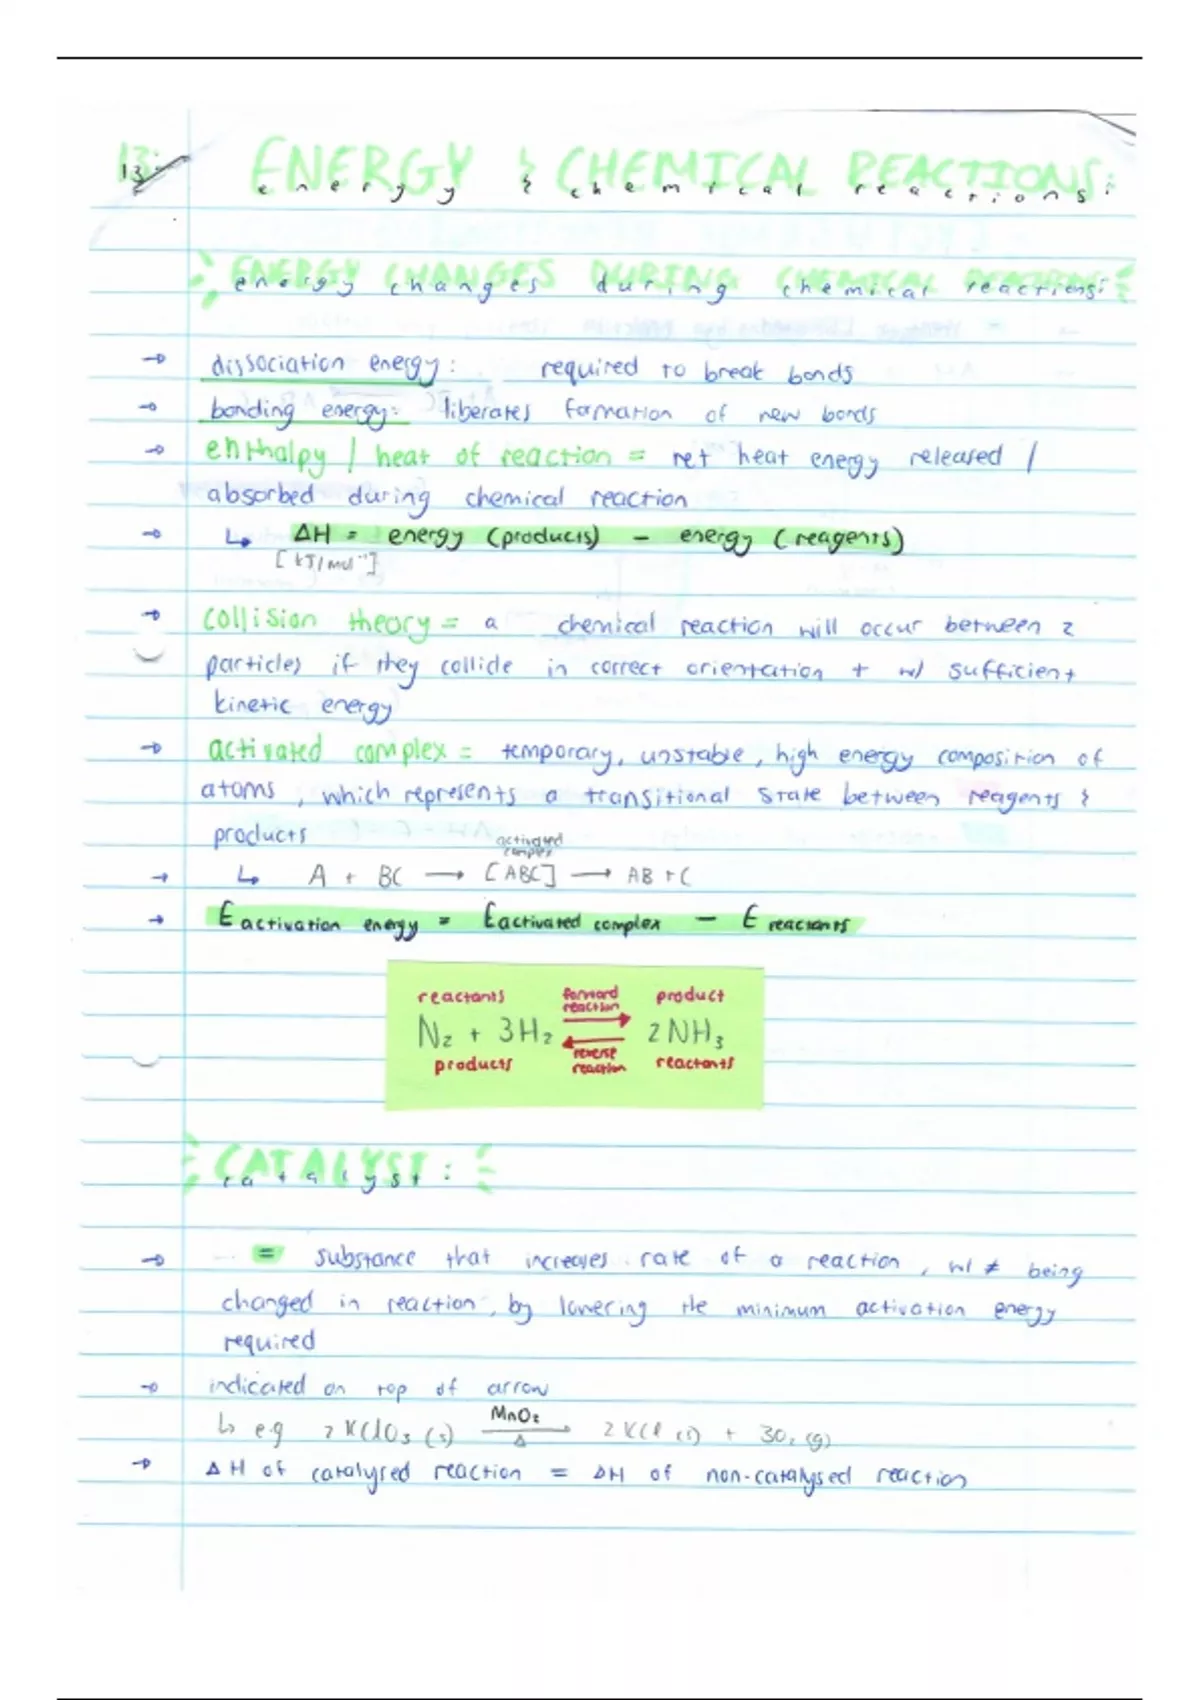 13:
ENERGY & CHEMICAL REACTIONS:
energy & chemical reactions:
ENERGY CHANGES DURING CHEMICAL REACTIONS:
energy changes during chemical reactions:
→ dissociation energy: required to break bonds
→ bonding energy: liberates formation of new bonds
→ enthalpy / heat of reaction = net heat energy released /
absorbed during chemical reaction
→ ↳ ΔH = energy (products) - energy (reagents)
[kJ/mol⁻¹]
→ collision theory = a chemical reaction will occur between 2
particles if they collide in correct orientation + w/ sufficient
kinetic energy
→ activated complex = temporary, unstable, high energy composition of
atoms, which represents a transitional state between reagents &
products
activated
complex
→ ↳ A + BC → [ABC] → AB + C
→ E activation energy = E activated complex - E reactants
reactants forward reaction product
N₂ + 3H₂ ⇄ 2NH₃
products reverse reaction reactants
CATALYST:
catalyst:
→ = substance that increases rate of a reaction, w/ ≠ being
changed in reaction, by lowering the minimum activation energy
required
→ indicated on top of arrow
MnO₂
↳ e.g 2KClO₃ (s) → 2KCl (s) + 3O₂ (g)
Δ
→ ΔH of catalysed reaction = ΔH of non-catalysed reaction